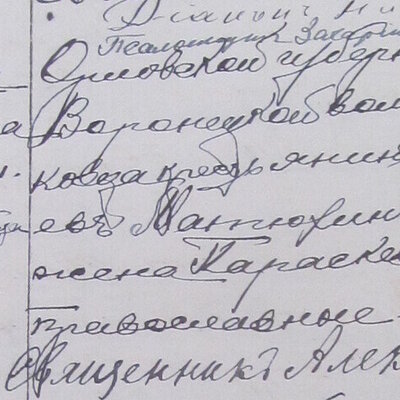 Діаконъ Ни
Псаломщикъ Захарі
Орловской губерн
Воронецкой вол
ковза крестьянин
евъ Матюхин
жена Параске
православные
Священникъ Алек